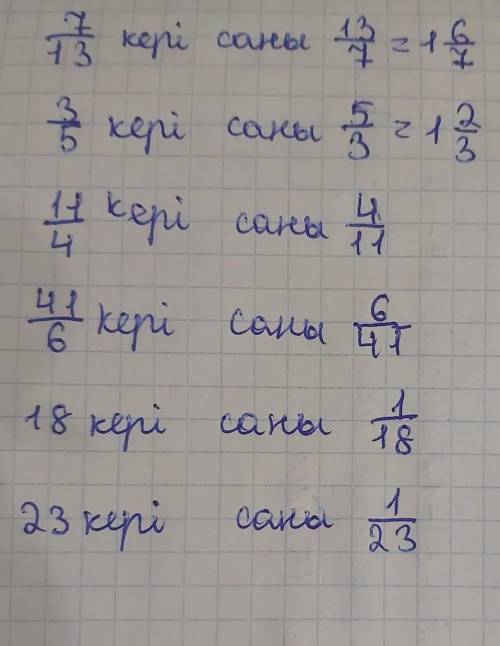 7/13 кері саны 13/7 = 1 6/7
3/5 кері саны 5/3 = 1 2/3
11/4 кері саны 4/11
41/6 кері саны 6/41
18 кері саны 1/18
23 кері саны 1/23